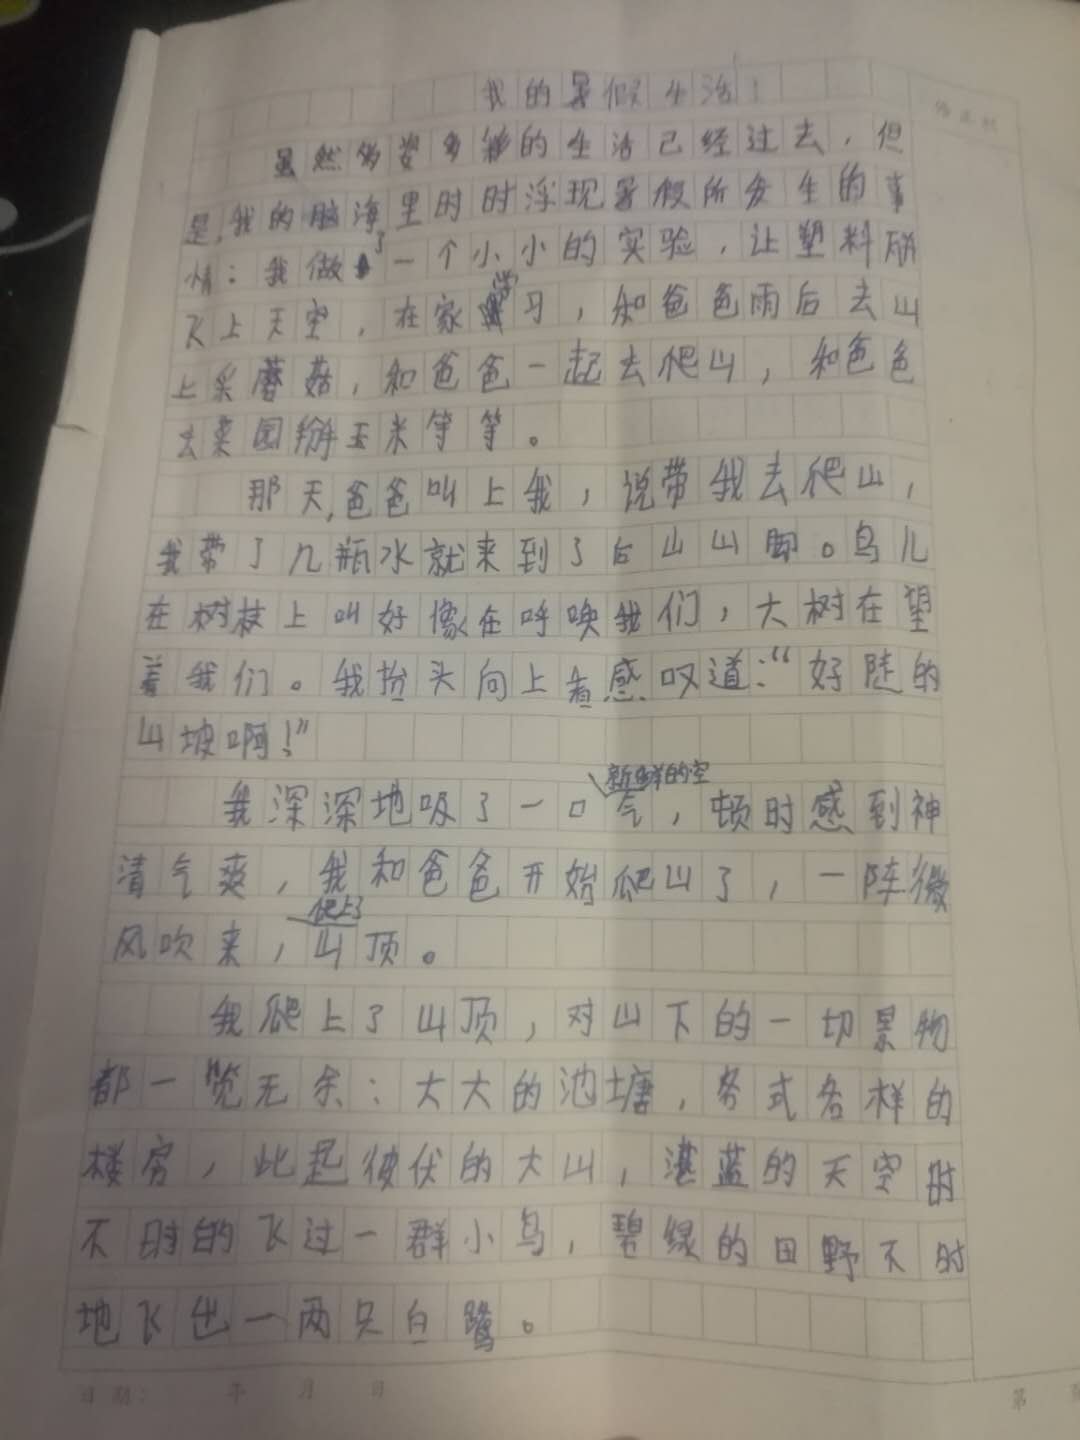 我的暑假生活！
虽然多姿多彩的生活已经过去，但
是，我的脑海里时时浮现暑假所发生的事
情：我做了一个小小的实验，让塑料瓶
飞上天空，在家学习，和爸爸雨后去山
上采蘑菇，和爸爸一起去爬山，和爸爸
去菜园掰玉米等等。
那天，爸爸叫上我，说带我去爬山，
我带了几瓶水就来到了后山山脚。鸟儿
在树枝上叫好像在呼唤我们，大树在望
着我们。我抬头向上看感叹道：“好陡的
山坡啊！”
我深深地吸了一口新鲜的空气，顿时感到神
清气爽，我和爸爸开始爬山了，一阵微
风吹来，爬上了山顶。
我爬上了山顶，对山下的一切景物
都一览无余：大大的池塘，各式各样的
楼房，此起彼伏的大山，湛蓝的天空时
不时的飞过一群小鸟，碧绿的田野不时
地飞出一两只白鹭。
日期： 年 月 日
第